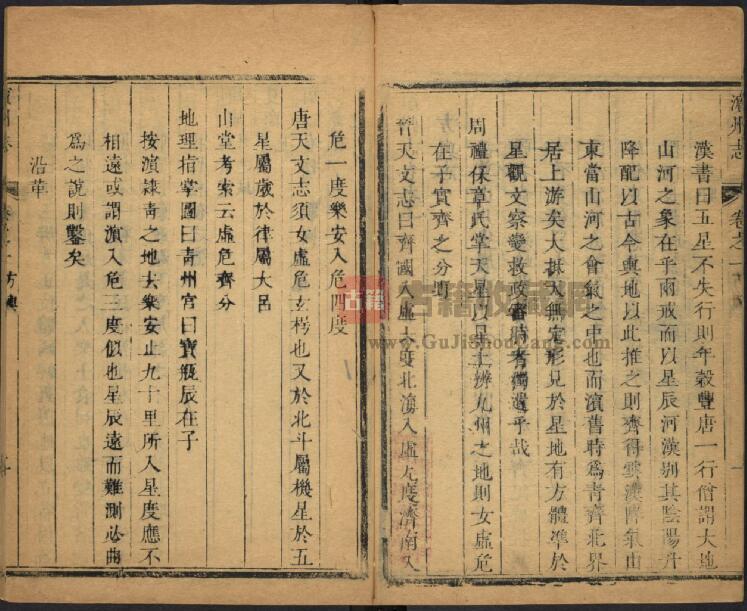 濱州志 卷之一
漢書曰五星不失行則年穀豐唐一行僧謂大地
山河之象在乎兩戒而以星辰河漢别其陰陽升
降配以古今輿地以此推之則齊得雲漢降氣山
東當山河之會氣之中也而濱舊時爲青齊北界
居上游矣大抵天無定形見於星地有方體準於
星觀文察變救政審時者獨遺乎哉
周禮保章氏掌天星以星土辨九州之地則女虛危
在子實齊之分野
晉天文志曰齊國入虛六度北海入虛九度濟南入
危一度樂安入危四度
唐天文志須女虛危玄枵也又於北斗屬機星於五
星屬歲於律屬大呂
山堂考索云虛危齊分
地理指掌圖曰青州宫曰寶瓶辰在子
按濱隸青之地去樂安止九十里所入星度應不
相遠或謂濱入危三度似也星辰遠而難測必曲
爲之說則鑿矣
沿革
卷之一方輿
古籍 古籍收藏网
www.GuJiShouCang.com